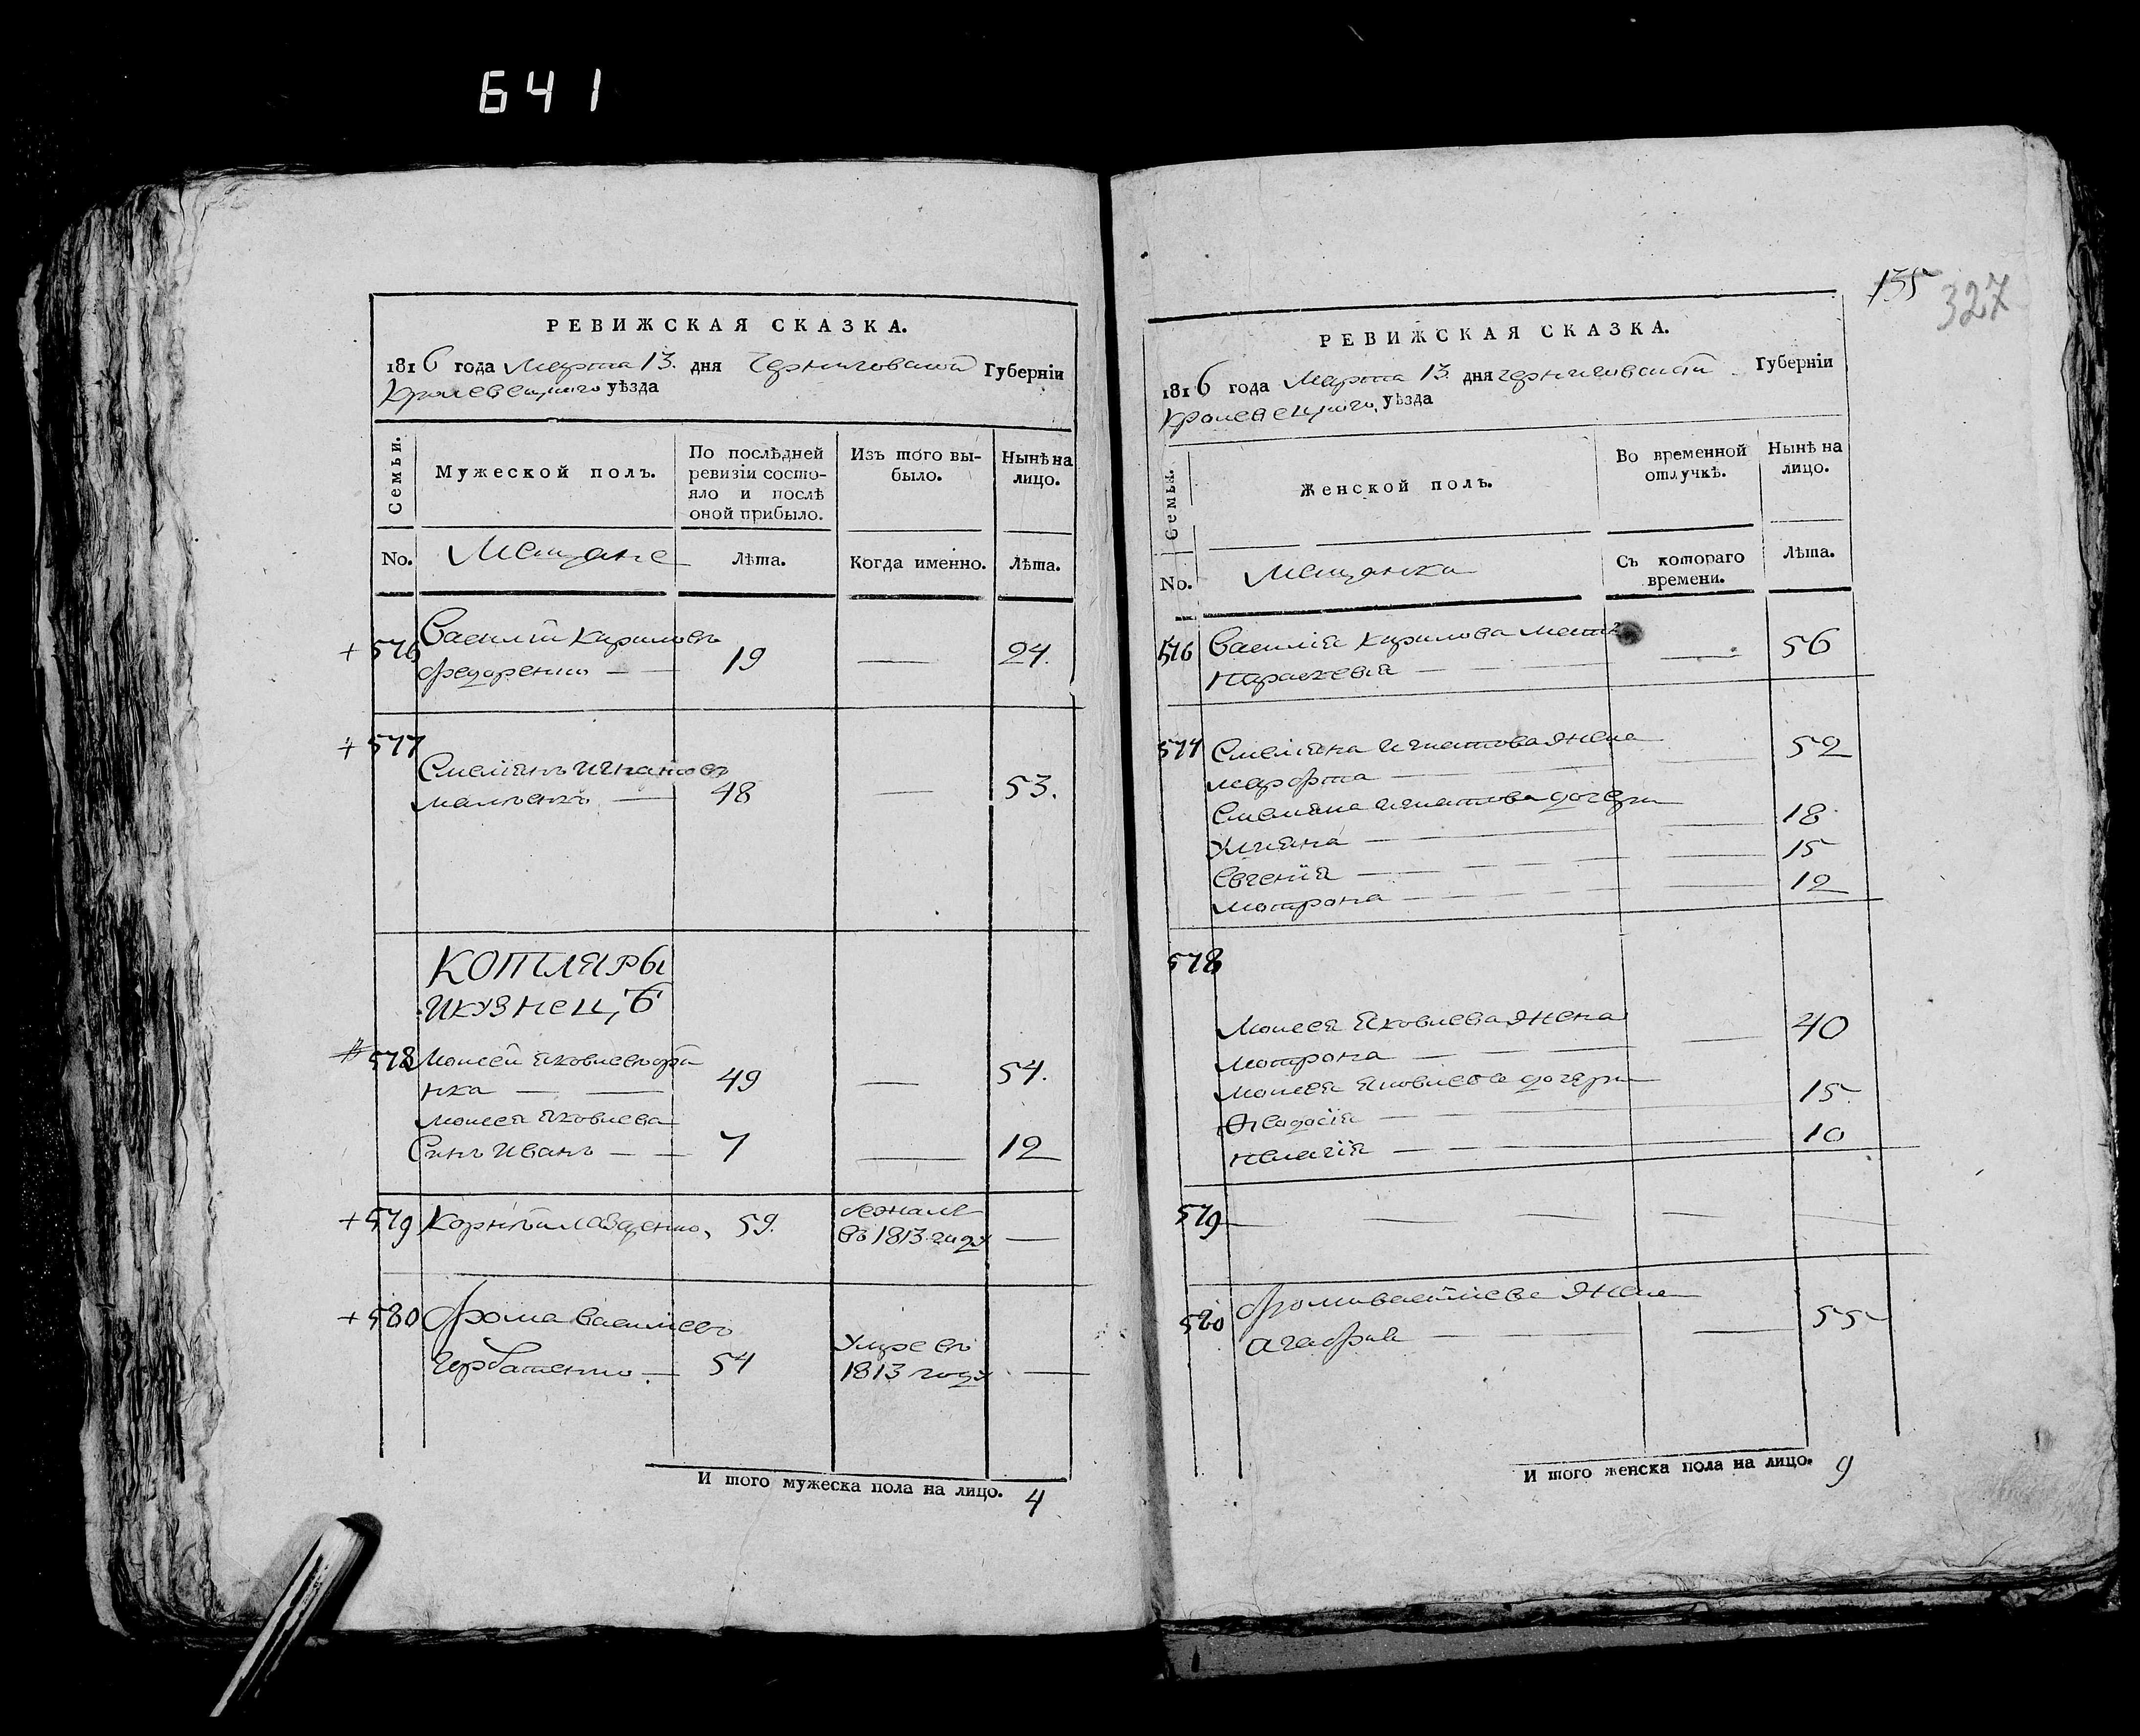 641
РЕВИЖСКАЯ СКАЗКА.
1816 года Марта 13. дня Черниговской Губерніи
Кролевецкого уѣзда
Семьи.
Мужеской полъ.
По послѣдней ревизіи состояло и послѣ оной прибыло.
Изъ того выбыло.
Нынѣ на лицо.
No.
Мещане
Лѣта.
Когда именно.
Лѣта.
+ 576 Василій Кириловъ
Федоренко — 19 — 24.
+ 577
48 — 53.
КОТЛЯРЫ
И КУЗНЕЦЪ
578 Моисей Яковлевъ
нка — — 49 — 54.
Моисея Яковлева
Синъ Иванъ — — 7 — 12
+ 579 59.
въ 1813 году —
+ 580 Фома Васильевъ
Умре въ
Горбатенко — 54 1813 году —
И того мужеска пола на лицо. 4
155
327
РЕВИЖСКАЯ СКАЗКА.
1816 года Марта 13 дня Черниговской Губерніи
Кролевецкого уѣзда
Семьи.
Женской полъ.
Во временной отлучкѣ.
Нынѣ на лицо.
No.
Мещанки
Съ котораго времени.
Лѣта.
576 Василія Кирилова мать
Параскевія — — — 56
577 жена
Марфта — — — 52
дочери
Улияна — — 18
Евгенія — — — 15
Мотрона — — — 12
578
Моисея Яковлева жена
Мотрона — — — 40
Моисея Яковлева дочери
Феодосія — — 15
Пелагія — — 10
579 — — — — —
580 Фомы Васильева жена
Агафия — — — 55
И того женска пола на лицо. 9